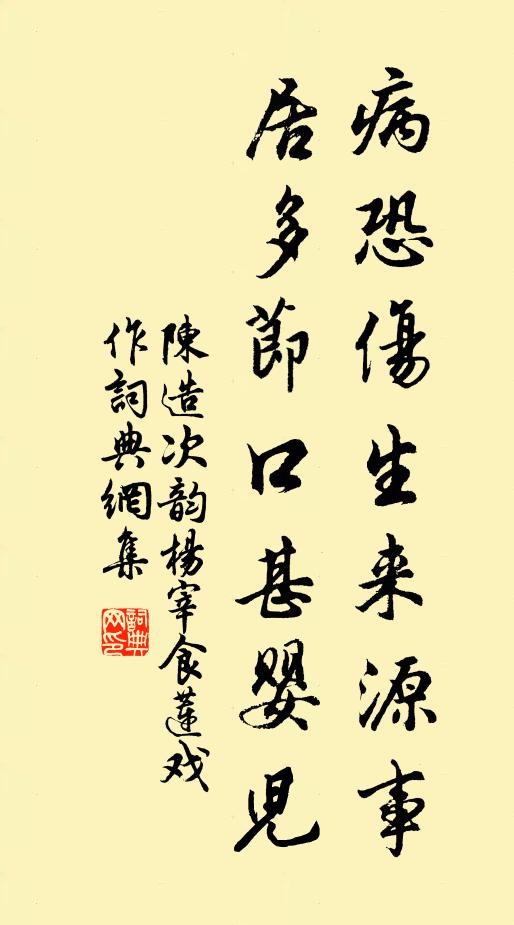 病恐傷生来源事
居多節口甚嬰児
陳造次韵楊宰食蓮戏
作詞典網集
詞典
网印